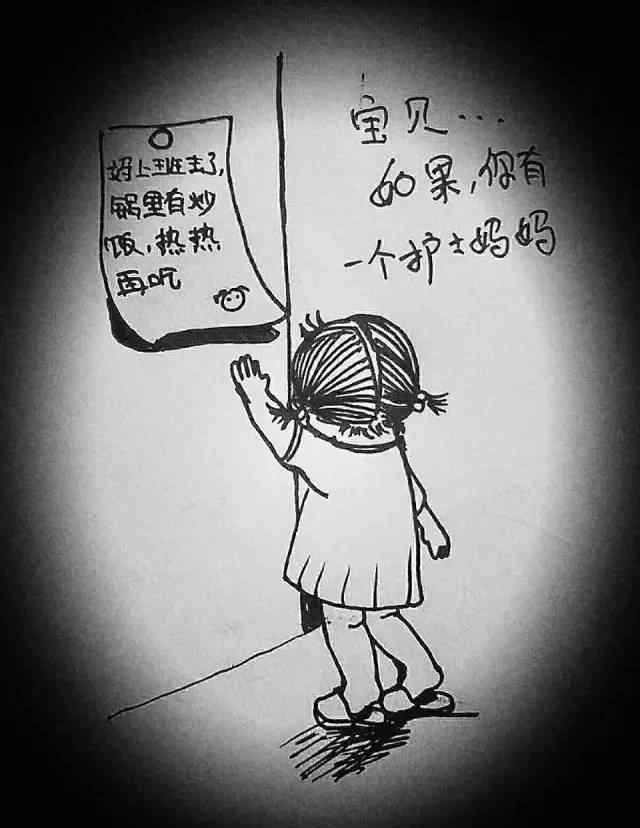 妈上班去了,
锅里有炒
饭,热热
再吃
宝贝...
如果,你有
一个护士妈妈